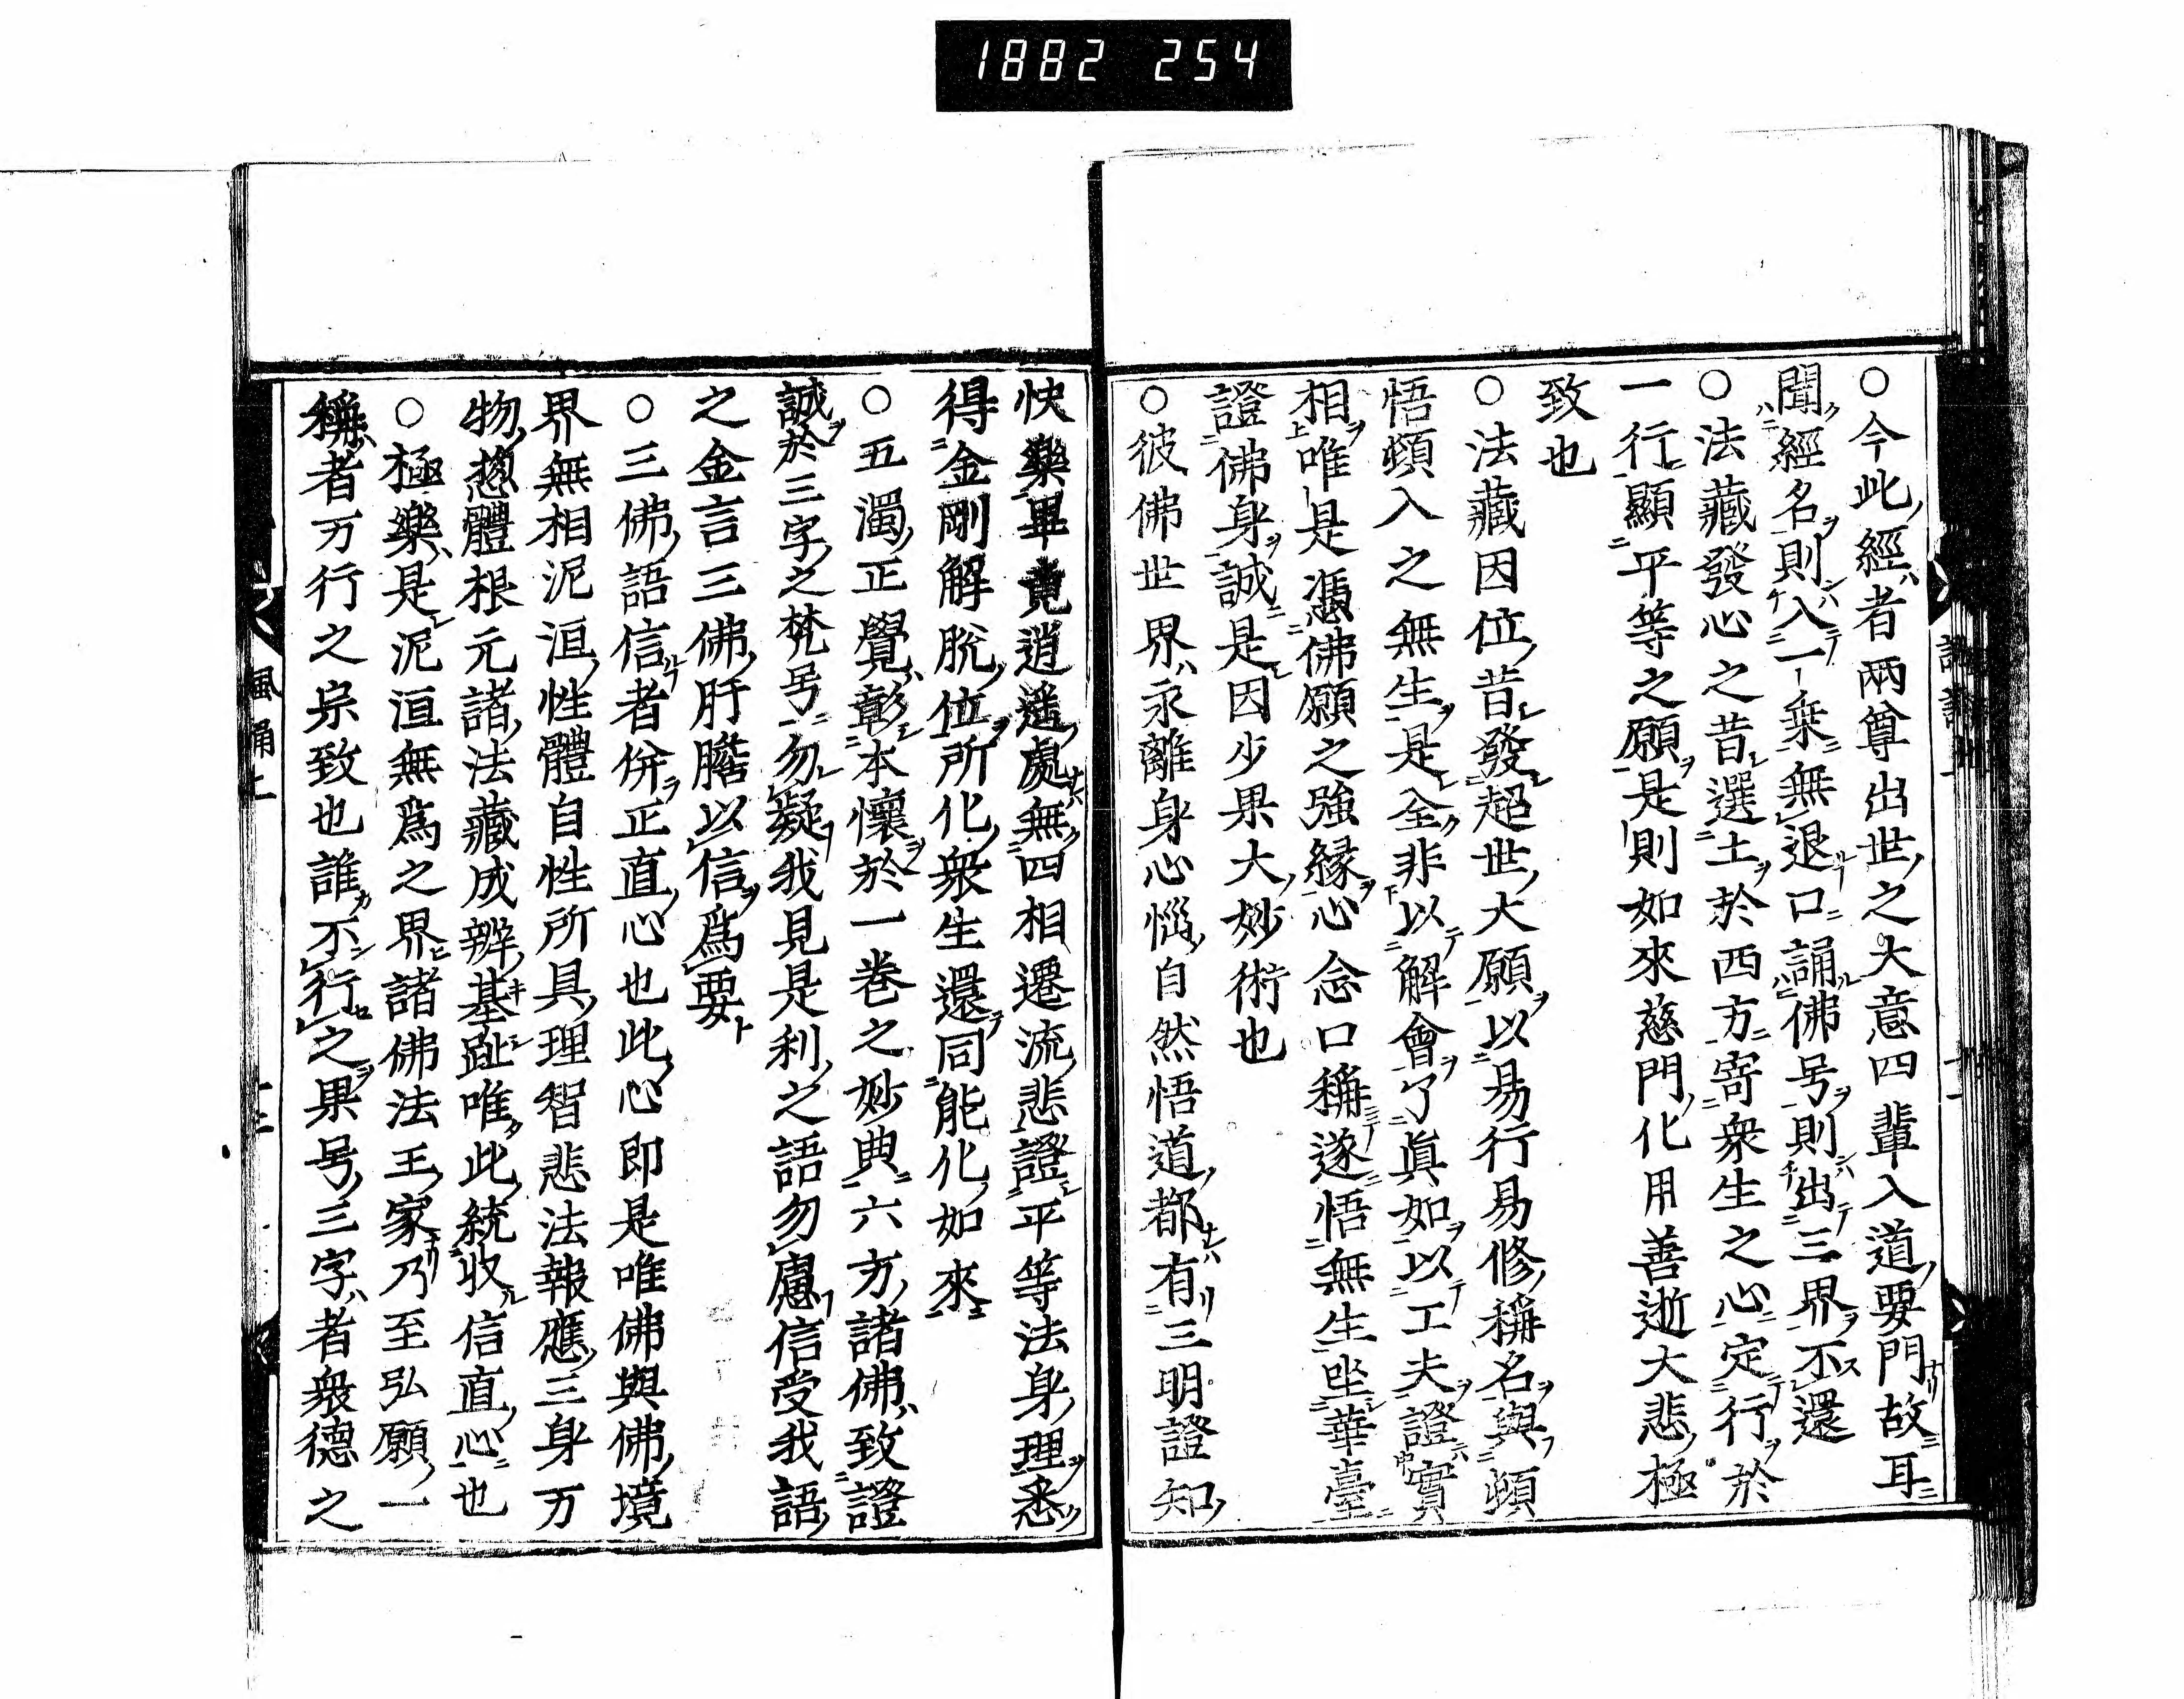 1882 254
○今此經者兩尊出世之大意四輩入道要門故耳
聞經名則入一乘無退口誦佛号則出三界不還
○法藏發心之昔選土於西方寄衆生之心定行於
一行顯平等之願是則如來慈門化用善逝大悲極
致也
○法藏因位昔發超世大願以易行易修稱名與頓
悟頓入之無生是全非以解會了眞如以工夫證實
相唯是憑佛願之強緣心念口稱遂悟無生坐華臺
證佛身誠是因少果大妙術也
○彼佛世界永離身心惱自然悟道都有三明證知
快樂畢竟逍遥處無四相遷流悲證平等法身理悉
得金剛解脱位所化衆生還同能化如來
○五濁正覺彰本懷於一卷之妙典六方諸佛致證
誠於三字之梵号勿疑我見是利之語勿慮信受我語
之金言三佛肝膽以信爲要
○三佛語信者併正直心也此心即是唯佛與佛境
界無相泥洹性體自性所具理智悲法報應三身万
物惣體根元諸法藏成辨基趾唯此統收信直心也
○極樂是泥洹無爲之界諸佛法王家乃至弘願一
稱者万行之宗致也誰不行之果号三字者衆德之
諷誦上